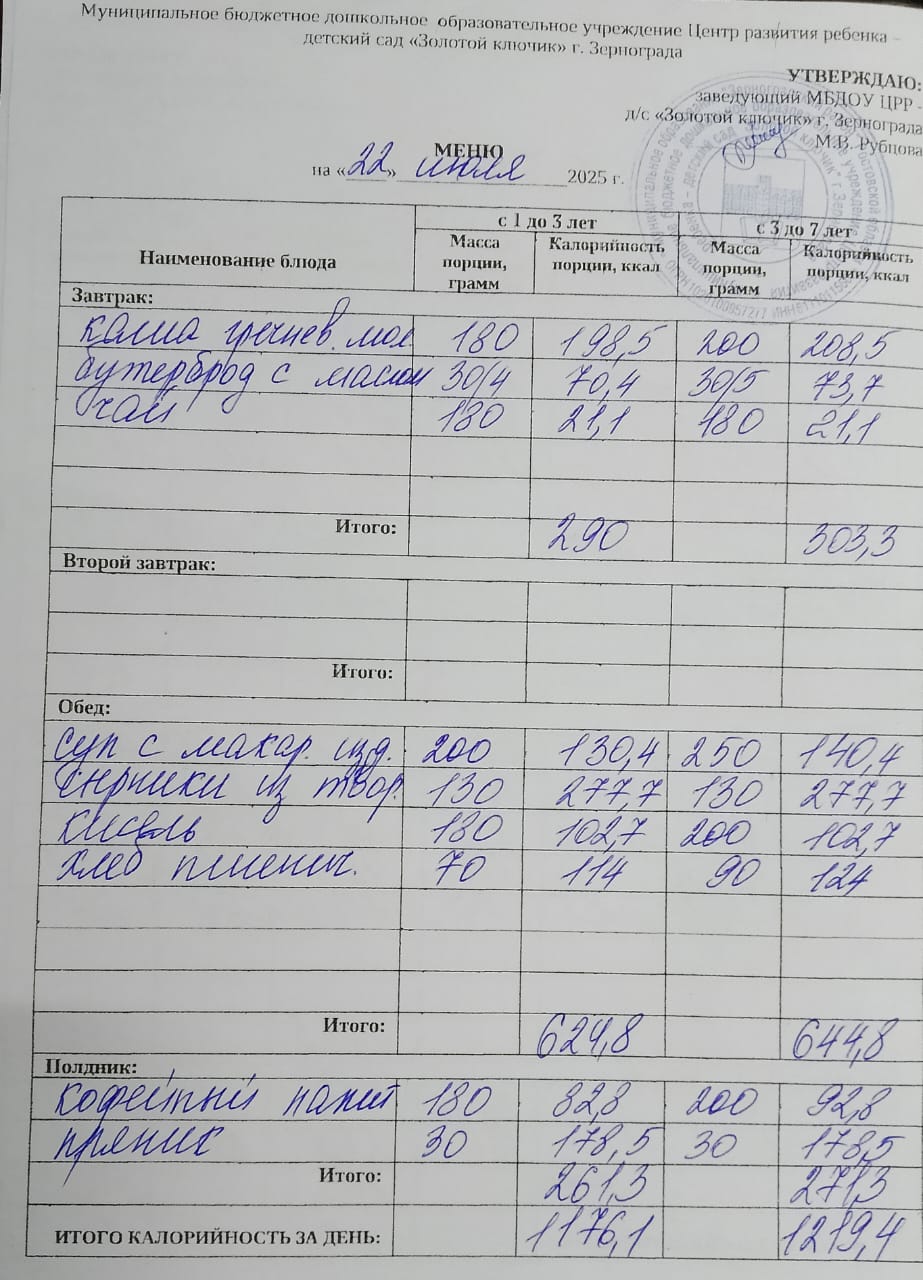 Муниципальное бюджетное дошкольное образовательное учреждение Центр развития ребенка –
детский сад «Золотой ключик» г. Зернограда
УТВЕРЖДАЮ:
заведующий МБДОУ ЦРР -
д/с «Золотой ключик» г. Зернограда
М.В. Рубцова
МЕНЮ
на «22» июля 2025 г.
Наименование блюда с 1 до 3 лет с 3 до 7 лет
Масса порции, грамм Калорийность порции, ккал Масса порции, грамм Калорийность порции, ккал
Завтрак:
каша гречнев. мол. 180 198,5 200 208,5
бутерброд с маслом 30/4 70,4 30/5 73,7
чай 180 21,1 180 21,1
Итого: 290 303,3
Второй завтрак:
Итого:
Обед:
суп с макар. изд. 200 130,4 250 140,4
сырники из твор. 130 277,7 130 277,7
кисель 180 102,7 200 102,7
хлеб пшенич. 70 114 90 124
Итого: 624,8 644,8
Полдник:
кофейный напит 180 82,8 200 92,8
пряник 30 178,5 30 178,5
Итого: 261,3 271,3
ИТОГО КАЛОРИЙНОСТЬ ЗА ДЕНЬ: 1176,1 1219,4